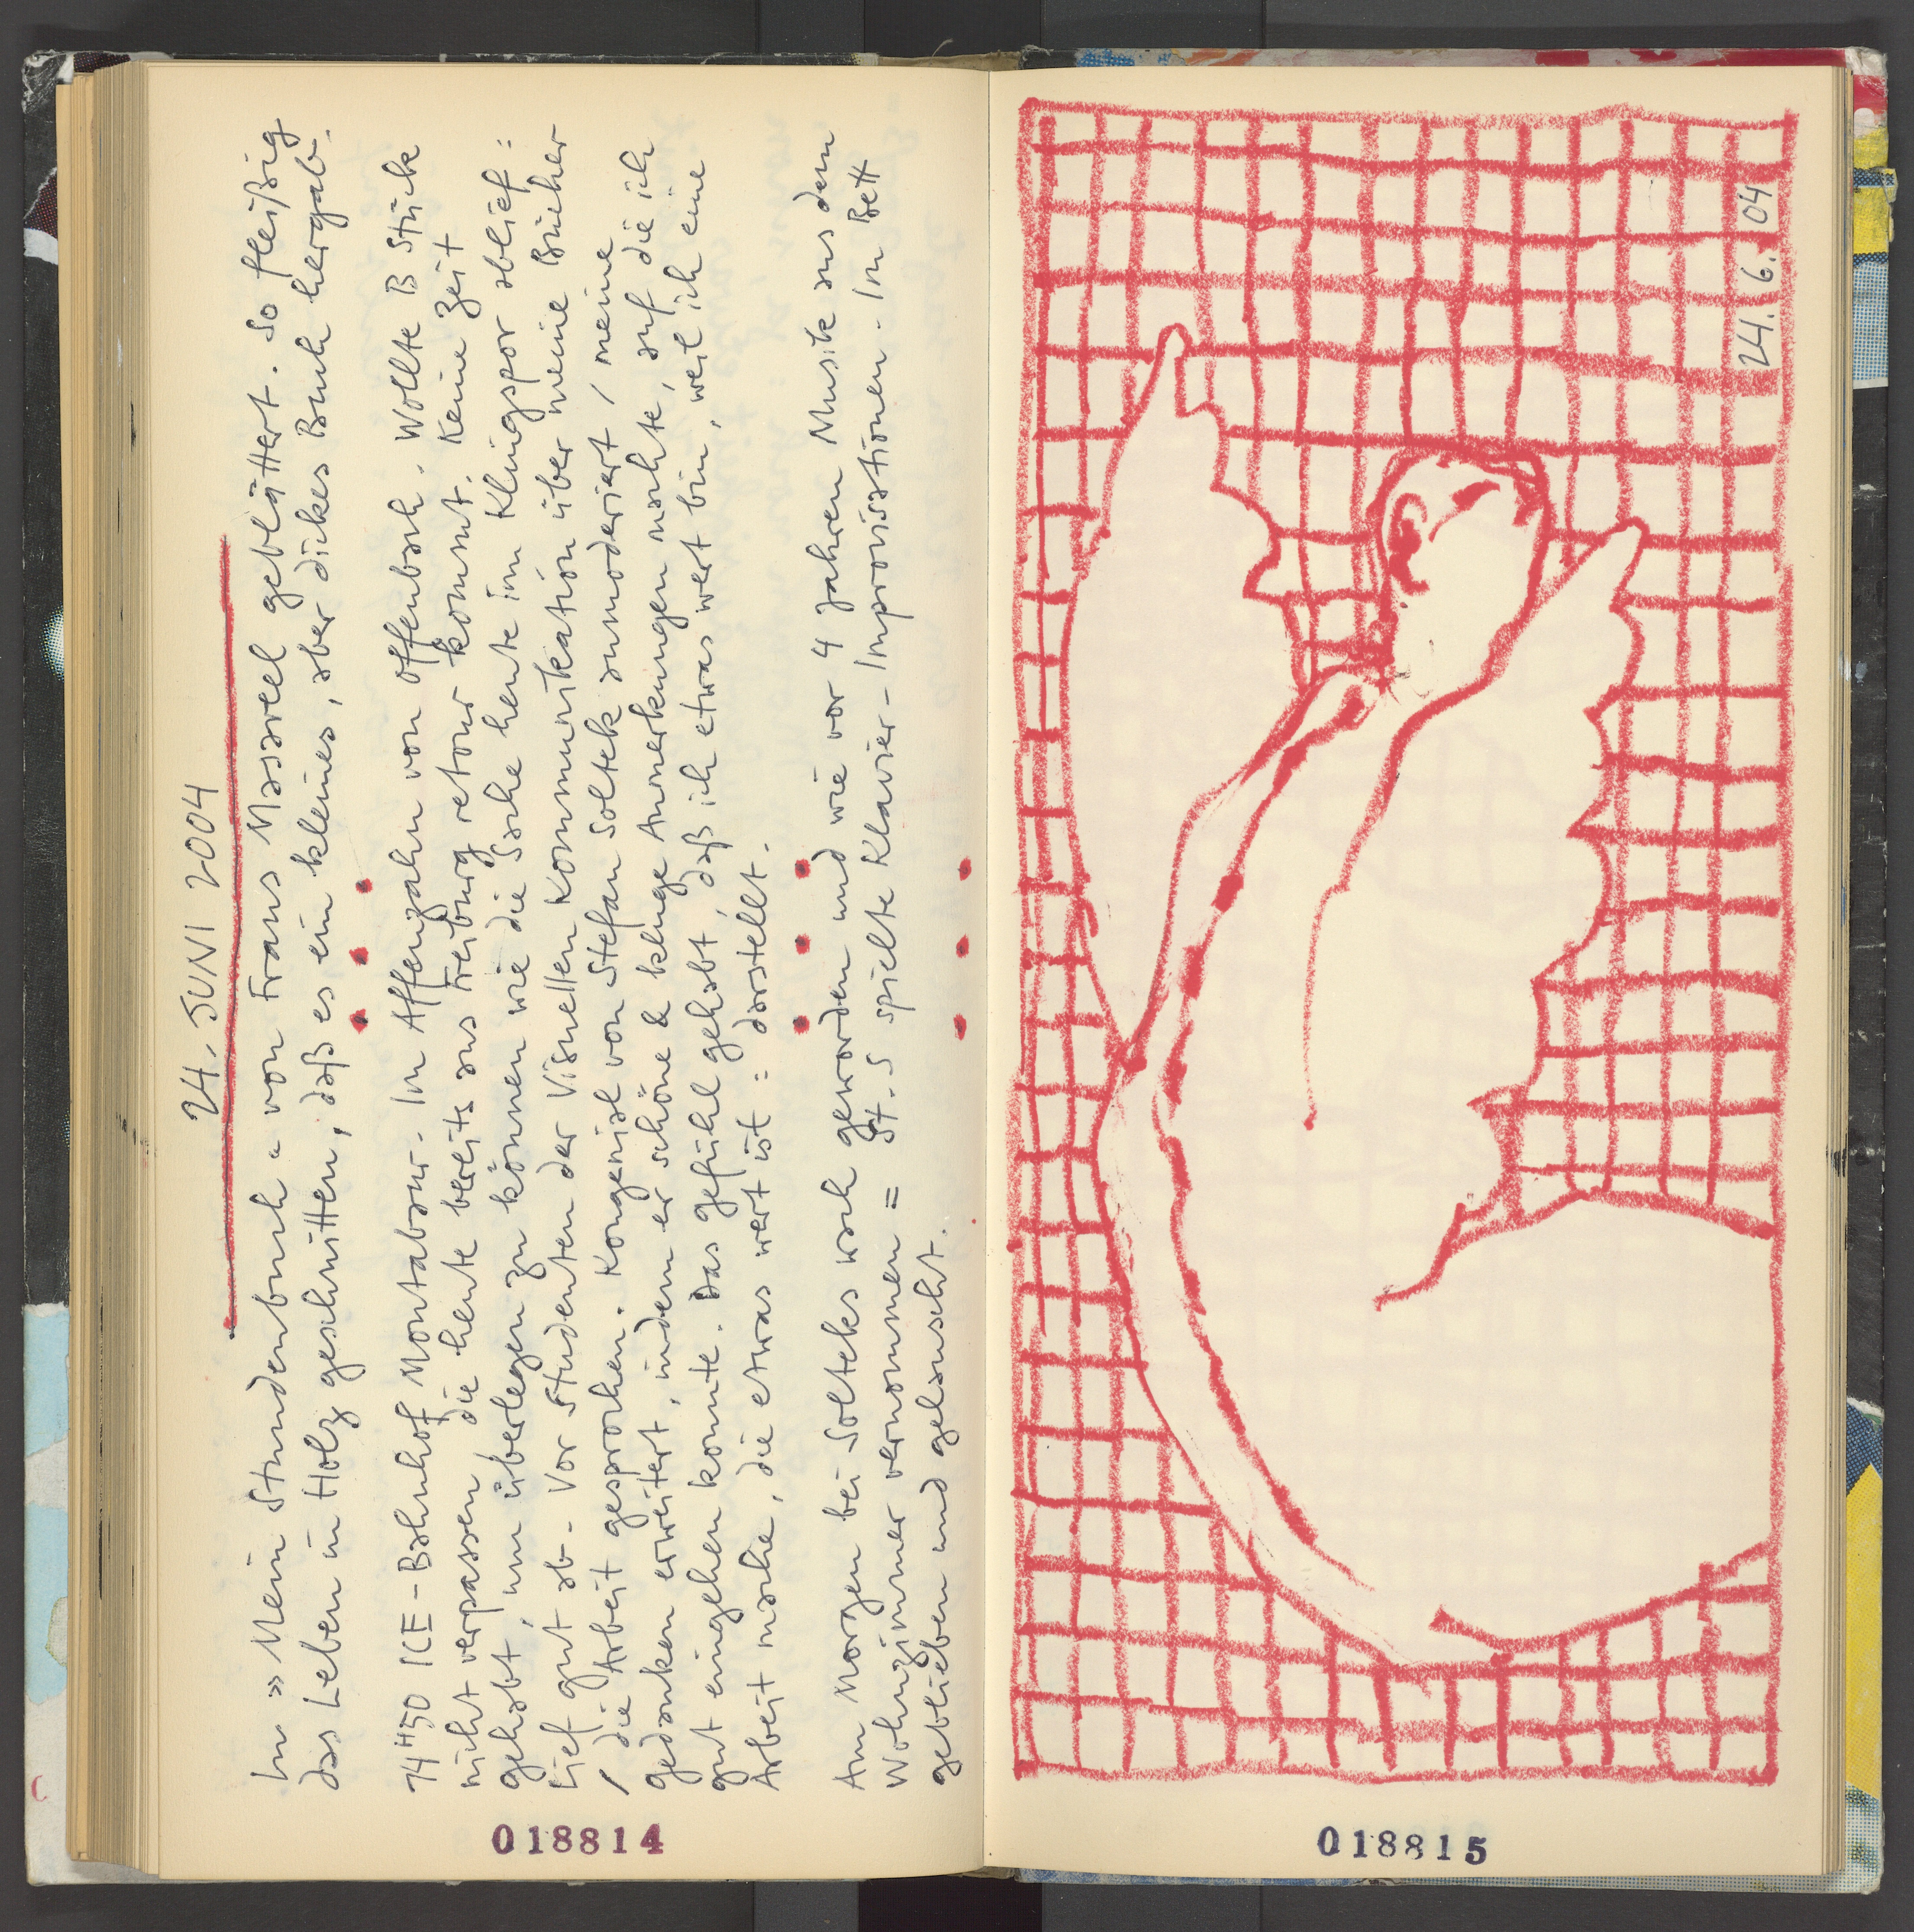 24. JUNI 2004
In »Mein Stundenbuch« von Frans Masereel geblättert. So fleißig
das Leben in Holz geschnitten, daß es ein kleines, aber dickes Buch hergab.
14H50 ICE-Bahnhof Montabaur. Im Affenzahn von Offenbach. Wollte B Stücke
nicht verpassen die heute bereits aus Freiburg retour kommt. Keine Zeit
gehabt, um überlegen zu können wie die Sache heute im Klingspor ablief:
Lief gut ab. Vor Studenten der Visuellen Kommunikation über meine Bücher
/ die Arbeit gesprochen. Kongenial von Stefan Soltek anmoderiert / meine
Gedanken erweitert, indem er schöne & kluge Anmerkungen machte, auf die ich
gut eingehen konnte. Das Gefühl gehabt, daß ich etwas wert bin, weil ich eine
Arbeit mache, die etwas wert ist = darstellt.
Am Morgen bei Solteks wach geworden und wie vor 4 Jahren Musik aus dem
Wohnzimmer vernommen = St. S spielte Klavier-Improvisationen. Im Bett
geblieben und gelauscht.
018814
24. 6. 04
018815